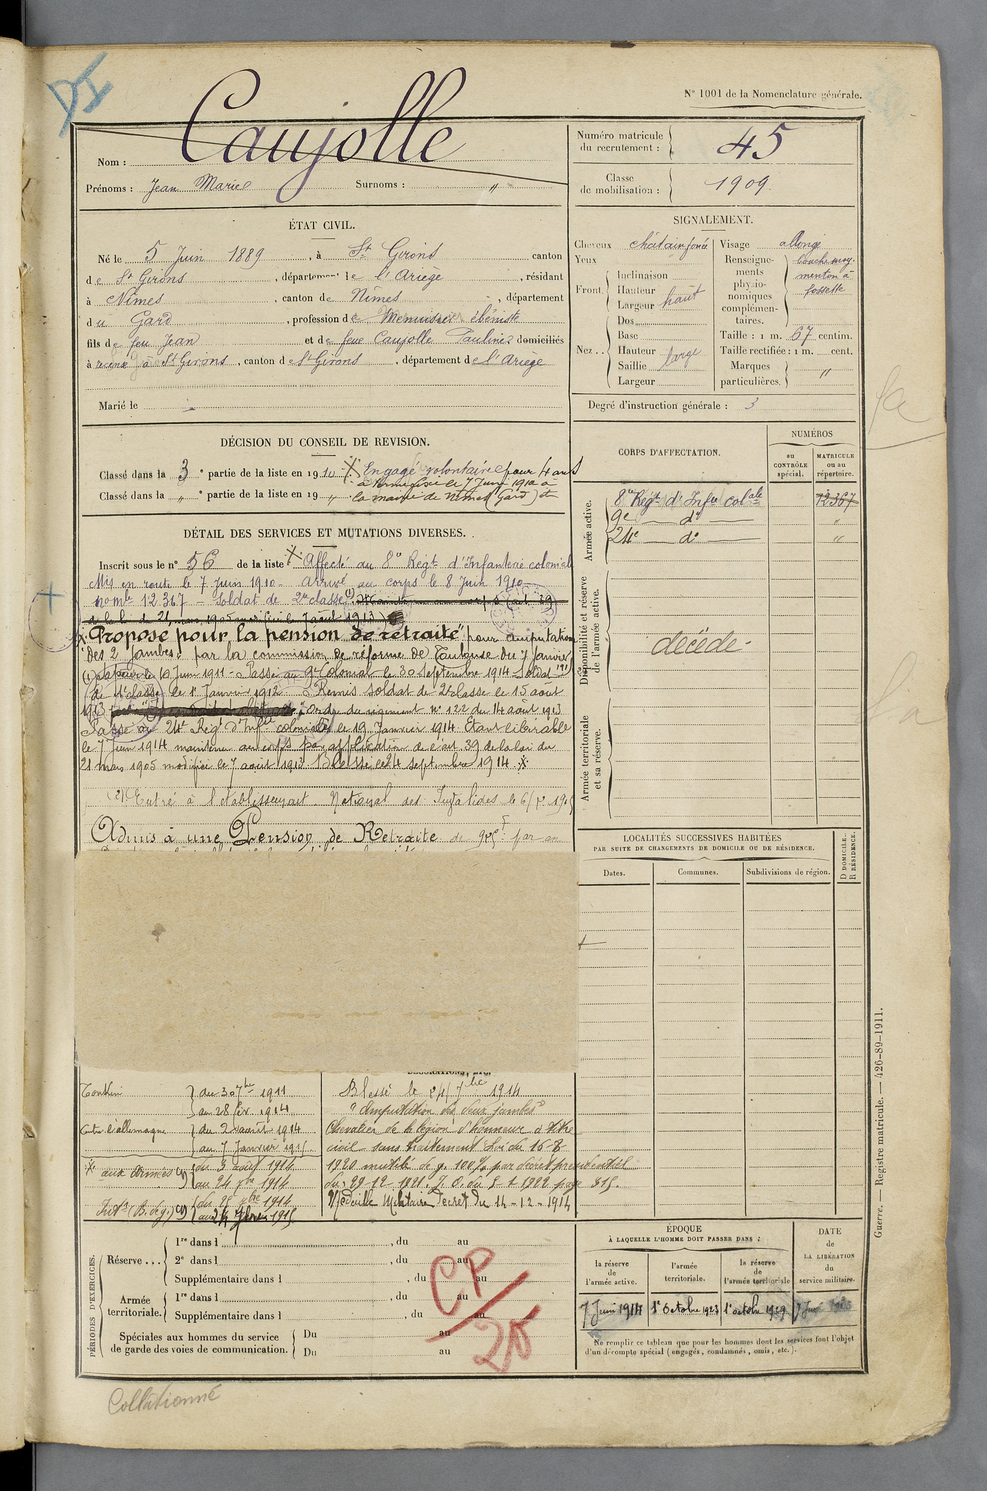 DI
N° 1001 de la Nomenclature générale.
Nom : Caujolle
Prénoms : Jean Marie Surnoms : "
Numéro matricule du recrutement : 45
Classe de mobilisation : 1909
ÉTAT CIVIL.
Né le 5 Juin 1889, à St Girons canton
de St Girons, département de l'Ariège, résidant
à Nîmes, canton de Nîmes, département
du Gard, profession de Menuisier ébéniste
fils de feu Jean et de feue Caujolle Pauline domiciliés
à St Girons, canton de St Girons, département de l'Ariège
Marié le
SIGNALEMENT.
Cheveux châtain foncé
Yeux
Front.
Inclinaison
Hauteur
Largeur haut
Nez..
Dos
Base
Hauteur
Saillie large
Largeur
Visage allongé
Renseignements physionomiques complémentaires. bouche moy. menton à fossette
Taille : 1 m. 67 centim.
Taille rectifiée : 1 m. cent.
Marques particulières. "
Degré d'instruction générale : 3
DÉCISION DU CONSEIL DE REVISION.
Classé dans la 3e partie de la liste en 1910 X Engagé volontaire pour 4 ans
à Nîmes le 7 Juin 1910 à
Classé dans la " e partie de la liste en 19 " la mairie de Nîmes (Gard) dt
DÉTAIL DES SERVICES ET MUTATIONS DIVERSES.
Inscrit sous le n° 56 de la liste X Affecté au 8e Régt d'Infanterie coloniale
Mis en route le 7 Juin 1910 - Arrivé au corps le 8 Juin 1910
no mle 12367 - Soldat de 2e classe
de la loi du 21 mars 1905 modifiée le 7 août 1913
"Proposé pour la pension de retraite" pour amputation
des 2 jambes par la commission de réforme de Toulouse du 7 janvier
le 10 Juin 1911 - Passé au 9e Colonial le 30 Septembre 1911 Soldat
de 1e classe le 1e Janvier 1912 - Remis soldat de 2e classe le 15 août
1913 Ordre du régiment n° 122 du 14 août 1913
Passé au 24e Régt d'Inftie coloniale le 19 Janvier 1914 Étant libérable
le 7 Juin 1914 maintenu au corps par application de l'art 39 de la loi du
21 mars 1905 modifiée le 7 août 1913 Blessé le 24 septembre 1914 X
(2) Entré à l'établissement National des Invalides le
Admis à une Pension de Retraite de 975 F par an
CORPS D'AFFECTATION.
NUMÉROS
au CONTRÔLE spécial.
MATRICULE ou au répertoire.
Armée active.
8e Régt d'Inftie Colale 12367
9e d° "
24e d° "
Disponibilité et réserve de l'armée active.
décédé
Armée territoriale et sa réserve.
LOCALITÉS SUCCESSIVES HABITÉES
PAR SUITE DE CHANGEMENTS DE DOMICILE OU DE RÉSIDENCE.
Dates.
Communes.
Subdivisions de région.
D DOMICILE.
R RÉSIDENCE.
Tonkin du 30 7bre 1911
au 28 fév. 1914
Contre l'allemagne du 2 août 1914
au 7 Janvier 1915
aux armées du 3 août 1914
au 24 7bre 1914
Blessé le 24 7bre 1914
"Amputation des deux jambes"
Chevalier de la légion d'honneur à titre
civil sans traitement Loi du 16-8
1920 mutilé de g. 100% par décret présidentiel
du 29-12-1921. J.O. du 8-1-1922 page 315.
Médaille Militaire Décret du 14-12-1914
PÉRIODES D'EXERCICES.
Réserve...
1re dans l , du au
2e dans l , du au
Supplémentaire dans l , du au
Armée territoriale.
1re dans l , du au
Supplémentaire dans l , du au
Spéciales aux hommes du service de garde des voies de communication.
Du au
Du au
CP/25
ÉPOQUE
À LAQUELLE L'HOMME DOIT PASSER DANS :
la réserve de l'armée active.
l'armée territoriale.
la réserve de l'armée territoriale
DATE de LA LIBÉRATION du service militaire.
7 Juin 1914 1e Octobre 1923 1e octobre 1929
Ne remplir ce tableau que pour les hommes dont les services font l'objet
d'un décompte spécial (engagés, condamnés, omis, etc.).
Guerre. — Registre matricule. — 426-89-1911.
Collationné